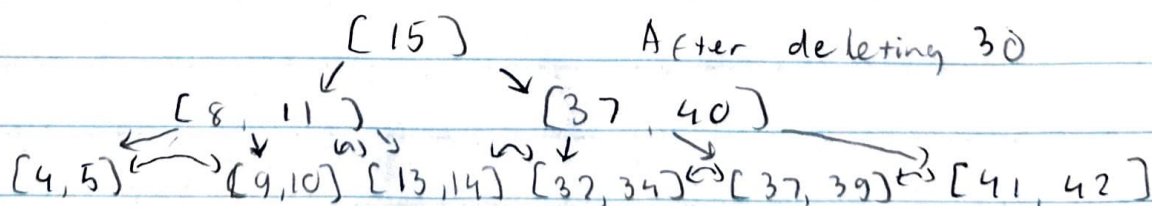 [15] After deleting 30
[8, 11] [37, 40]
[4,5] [9,10] [13,14] [32,34] [37,39] [41, 42]